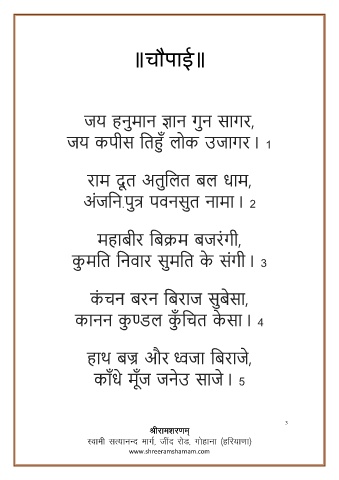 ॥चौपाई॥
जय हनुमान ज्ञान गुन सागर,
जय कपीस तिहुँ लोक उजागर। 1
राम दूत अतुलित बल धाम,
अंजनि.पुत्र पवनसुत नामा। 2
महाबीर बिक्रम बजरंगी,
कुमति निवार सुमति के संगी। 3
कंचन बरन बिराज सुबेसा,
कानन कुण्डल कुँचित केसा। 4
हाथ बज्र और ध्वजा बिराजे,
काँधे मूँज जनेउ साजे। 5
3
श्रीरामशरणम्
स्वामी सत्यानन्द मार्ग, जींद रोड, गोहाना (हरियाणा)
www.shreeramsharnam.com